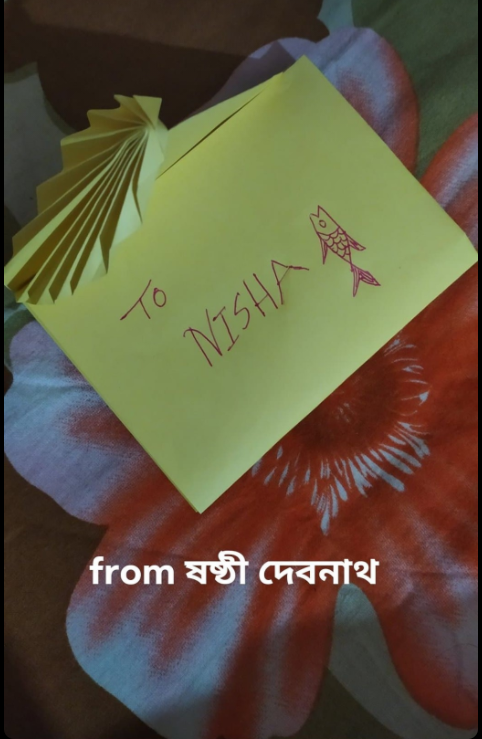 To
NISHA
from ষষ্ঠী দেবনাথ